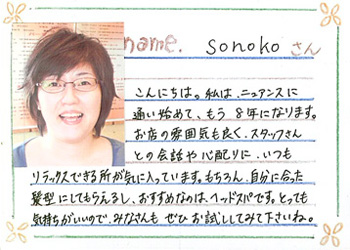 name. sonoko さん
こんにちは。私は、ニュアンスに
通い始めて、もう8年になります。
お店の雰囲気も良く、スタッフさん
との会話や心配りに、いつも
リラックスできる所が気に入っています。もちろん、自分に合った
髪型にしてもらえるし、おすすめなのは、ヘッドスパです。とっても
気持ちがいいので、みなさんも ぜひお試ししてみて下さいね。